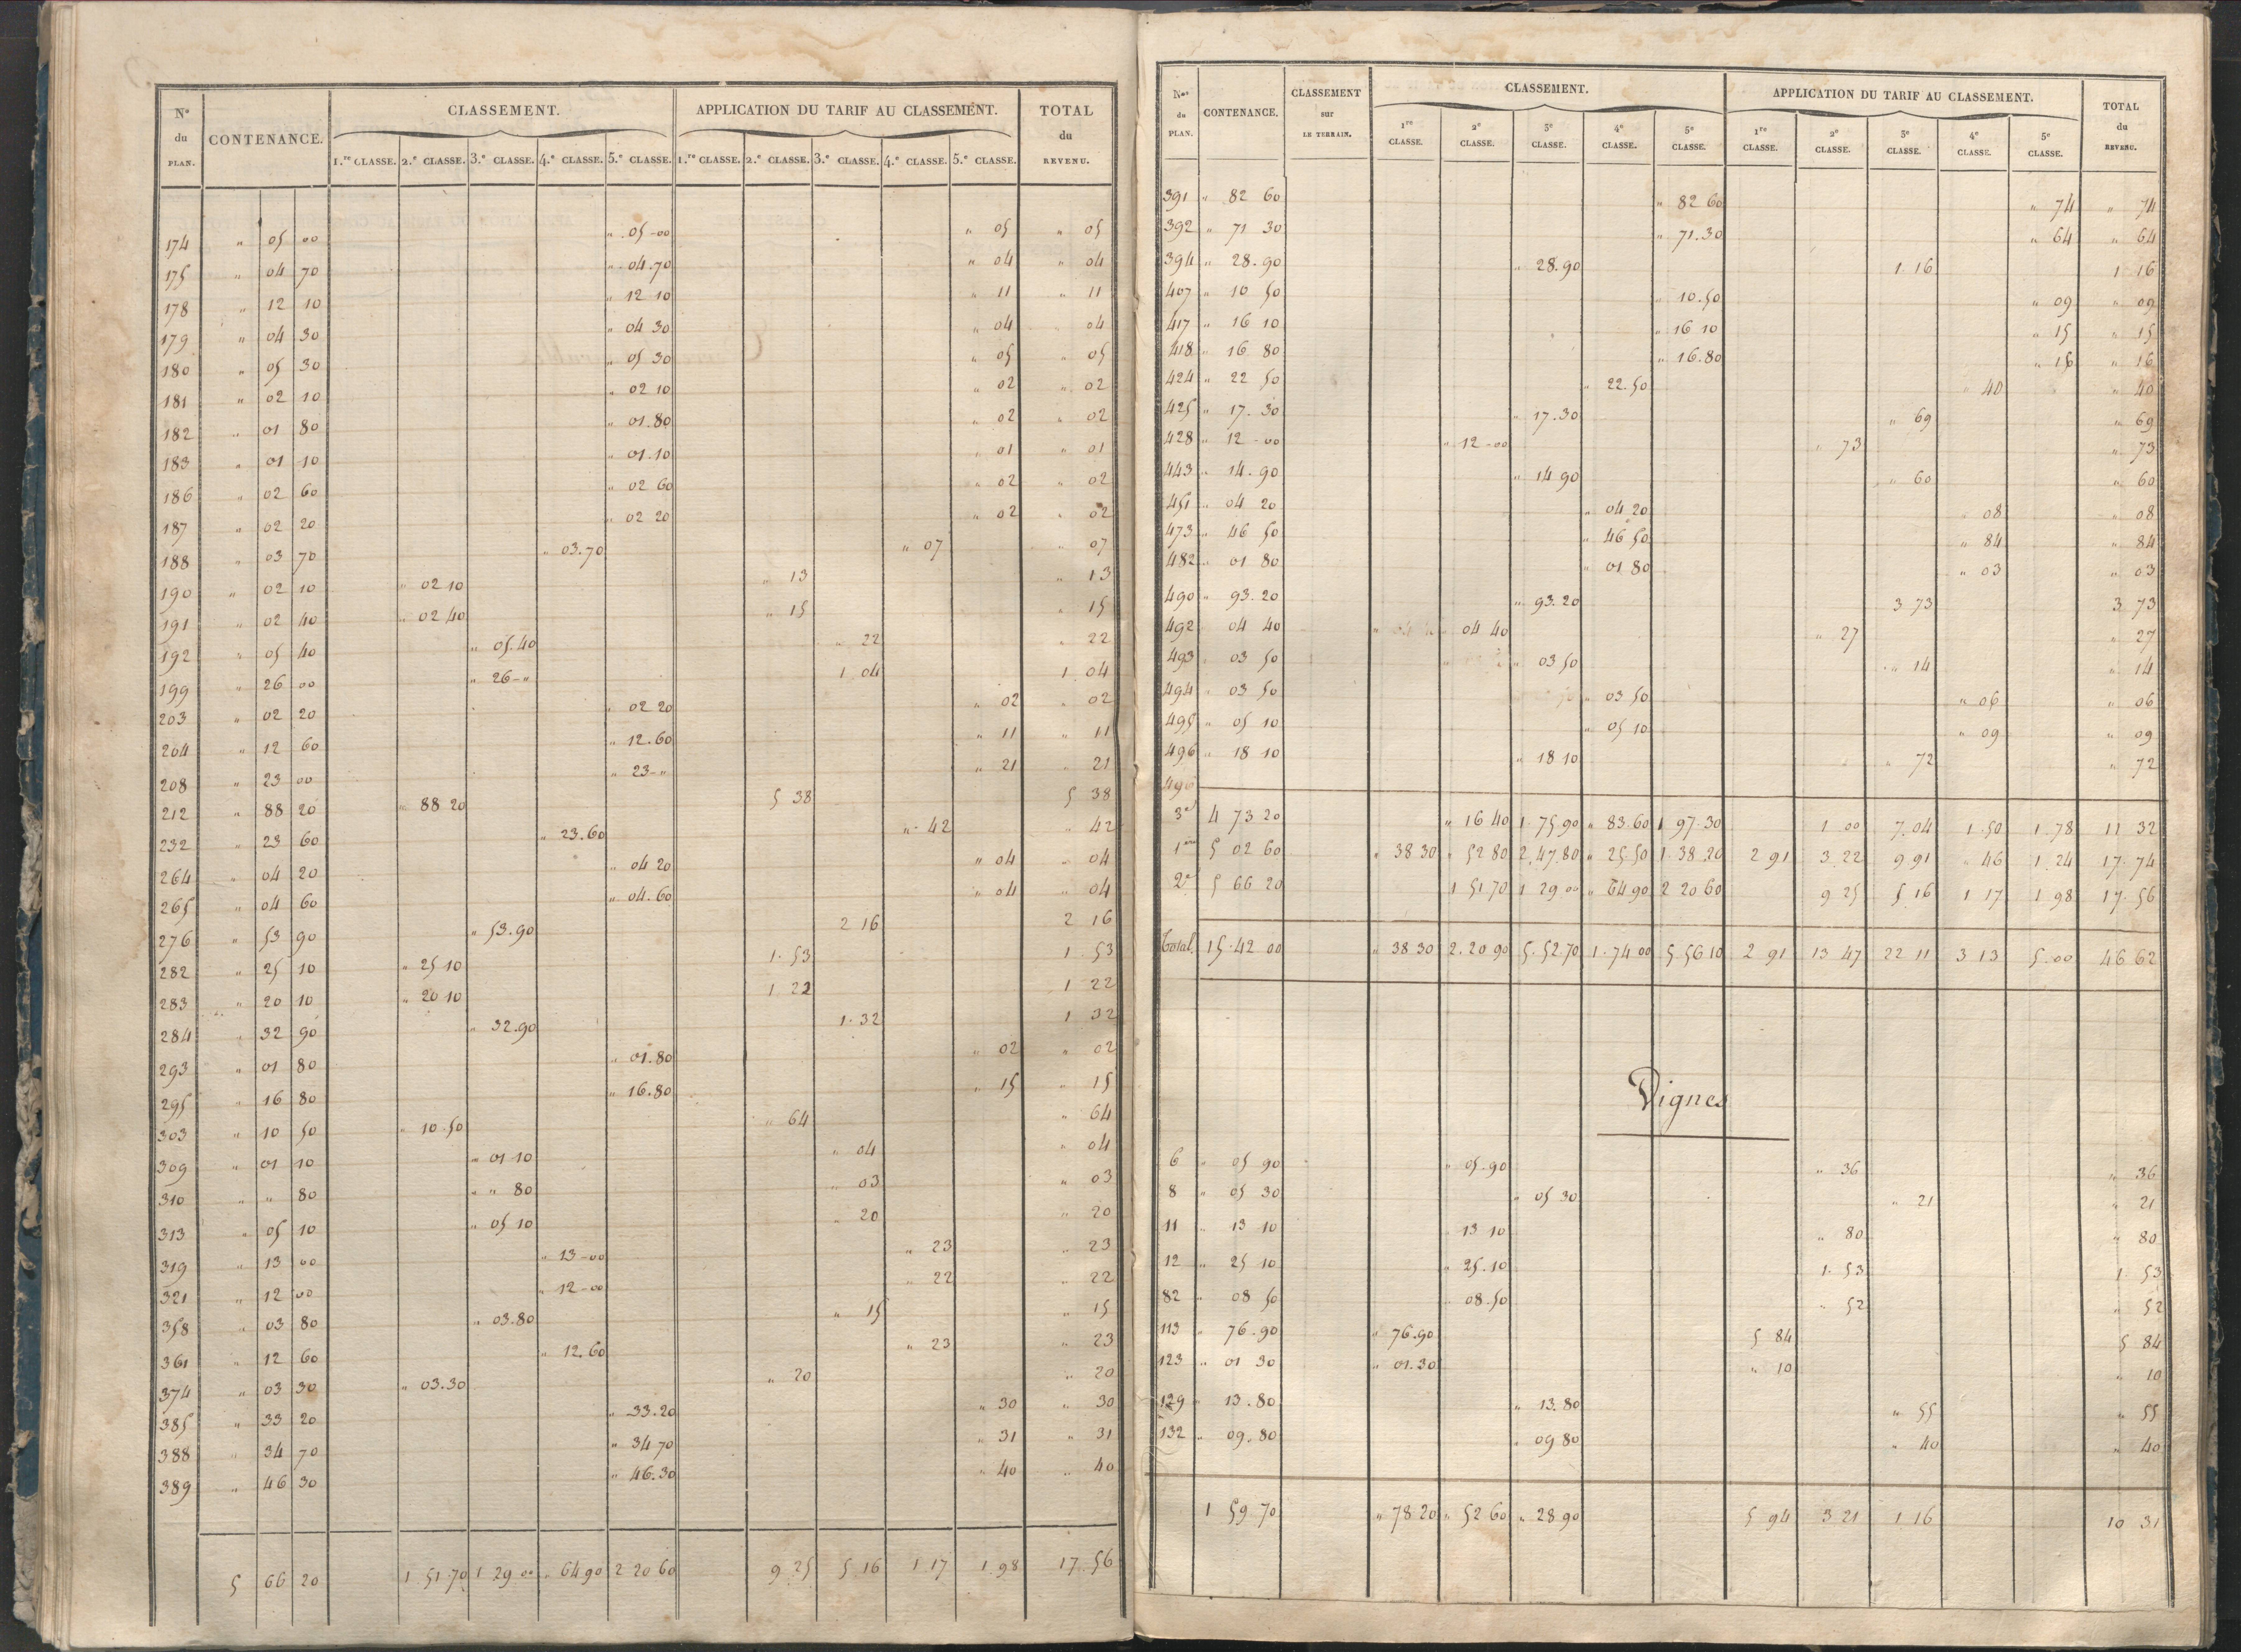 N.º du PLAN. CONTENANCE. CLASSEMENT. APPLICATION DU TARIF AU CLASSEMENT. TOTAL du REVENU.
1.re CLASSE. 2.e CLASSE. 3.e CLASSE. 4.e CLASSE. 5.e CLASSE. 1.re CLASSE. 2.e CLASSE. 3.e CLASSE. 4.e CLASSE. 5.e CLASSE.
174 " 05 00 " 05-00 " 05 " 05
175 " 04 70 " 04.70 " 04 " 04
178 " 12 10 " 12 10 " 11 " 11
179 " 04 30 " 04 30 " 04 " 04
180 " 05 30 " 05 30 " 05 " 05
181 " 02 10 " 02 10 " 02 " 02
182 " 01 80 " 01.80 " 02 " 02
183 " 01 10 " 01.10 " 01 " 01
186 " 02 60 " 02 60 " 02 " 02
187 " 02 20 " 02 20 " 02 " 02
188 " 03 70 " 03.70 " 07 " 07
190 " 02 10 " 02 10 " 13 " 13
191 " 02 40 " 02 40 " 15 " 15
192 " 05 40 " 05.40 " 22 " 22
199 " 26 00 " 26-" 1 04 1 04
203 " 02 20 " 02 20 " 02 " 02
204 " 12 60 " 12.60 " 11 " 11
208 " 23 00 " 23-" " 21 " 21
212 " 88 20 " 88 20 5 38 5 38
232 " 23 60 " 23.60 " 42 " 42
264 " 04 20 " 04 20 " 04 " 04
265 " 04 60 " 04.60 " 04 " 04
276 " 53 90 " 53.90 2 16 2 16
282 " 25 10 " 25 10 1.53 1.53
283 " 20 10 " 20 10 1 22 1 22
284 " 32 90 " 32.90 1.32 1 32
293 " 01 80 " 01.80 " 02 " 02
295 " 16 80 " 16.80 " 15 " 15
303 " 10 50 " 10.50 " 64 " 64
309 " 01 10 " 01 10 " 04 " 04
310 " " 80 " " 80 " 03 " 03
313 " 05 10 " 05 10 " 20 " 20
319 " 13 00 " 13-00 " 23 " 23
321 " 12 00 " 12-00 " 22 " 22
358 " 03 80 " 03.80 " 15 " 15
361 " 12 60 " 12.60 " 23 " 23
374 " 03 30 " 03.30 " 20 " 20
385 " 33 20 " 33.20 " 30 " 30
388 " 34 70 " 34 70 " 31 " 31
389 " 46 30 " 46.30 " 40 " 40
5 66 20 1 51.70 1 29 00 " 64 90 2 20 60 9 25 5 16 1 17 1.98 17.56
Nos du PLAN. CONTENANCE. CLASSEMENT sur LE TERRAIN. CLASSEMENT. APPLICATION DU TARIF AU CLASSEMENT. TOTAL du REVENU.
1re CLASSE. 2e CLASSE. 3e CLASSE. 4e CLASSE. 5e CLASSE. 1re CLASSE. 2e CLASSE. 3e CLASSE. 4e CLASSE. 5e CLASSE.
391 " 82 60 " 82 60 " 74 " 74
392 " 71 30 " 71.30 " 64 " 64
394 " 28.90 " 28.90 1 16 1 16
407 " 10 50 " 10.50 " 09 " 09
417 " 16 10 " 16 10 " 15 " 15
418 " 16 80 " 16.80 " 16 " 16
424 " 22 50 " 22.50 " 40 " 40
425 " 17.30 " 17.30 " 69 " 69
428 " 12-00 " 12-00 " 73 " 73
443 " 14.90 " 14 90 " 60 " 60
451 " 04 20 " 04 20 " 08 " 08
473 " 46 50 " 46 50 " 84 " 84
482 " 01 80 " 01 80 " 03 " 03
490 " 93.20 " 93.20 3 73 3 73
492 04 40 " 04 40 " 27 " 27
493 " 03 50 " 03 50 " 14 " 14
494 " 03 50 " 03 50 " 06 " 06
495 " 05 10 " 05 10 " 09 " 09
496 " 18 10 " 18 10 " 72 " 72
496
3e 4 73 20 " 16 40 1.75.90 " 83.60 1 97.30 1 00 7.04 1.50 1.78 11 32
1ère 5 02 60 " 38 30 " 52 80 2.47.80 " 25.50 1.38.20 2 91 3 22 9 91 " 46 1 24 17.74
2e 5 66 20 1 51 70 1 29 00 " 64 90 2 20 60 9 25 5 16 1 17 1 98 17.56
Total. 15.42 00 " 38 30 2.20 90 5.52.70 1.74 00 5.56 10 2 91 13 47 22 11 3 13 5.00 46 62
Vignes
6 " 05 90 " 05.90 " 36 " 36
8 " 05 30 " 05 30 " 21 " 21
11 " 13 10 " 13 10 " 80 " 80
12 " 25 10 " 25.10 1.53 1 53
82 " 08 50 " 08.50 " 52 " 52
113 " 76.90 " 76.90 5 84 5 84
123 " 01 30 " 01.30 " 10 " 10
129 " 13.80 " 13.80 " 55 " 55
132 " 09.80 " 09 80 " 40 " 40
1 59 70 " 78 20 " 52 60 " 28 90 5 94 3 21 1 16 10 31